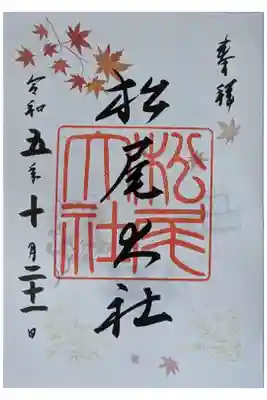 奉拝
松尾大社
松尾大社
令和五年十月二十一日